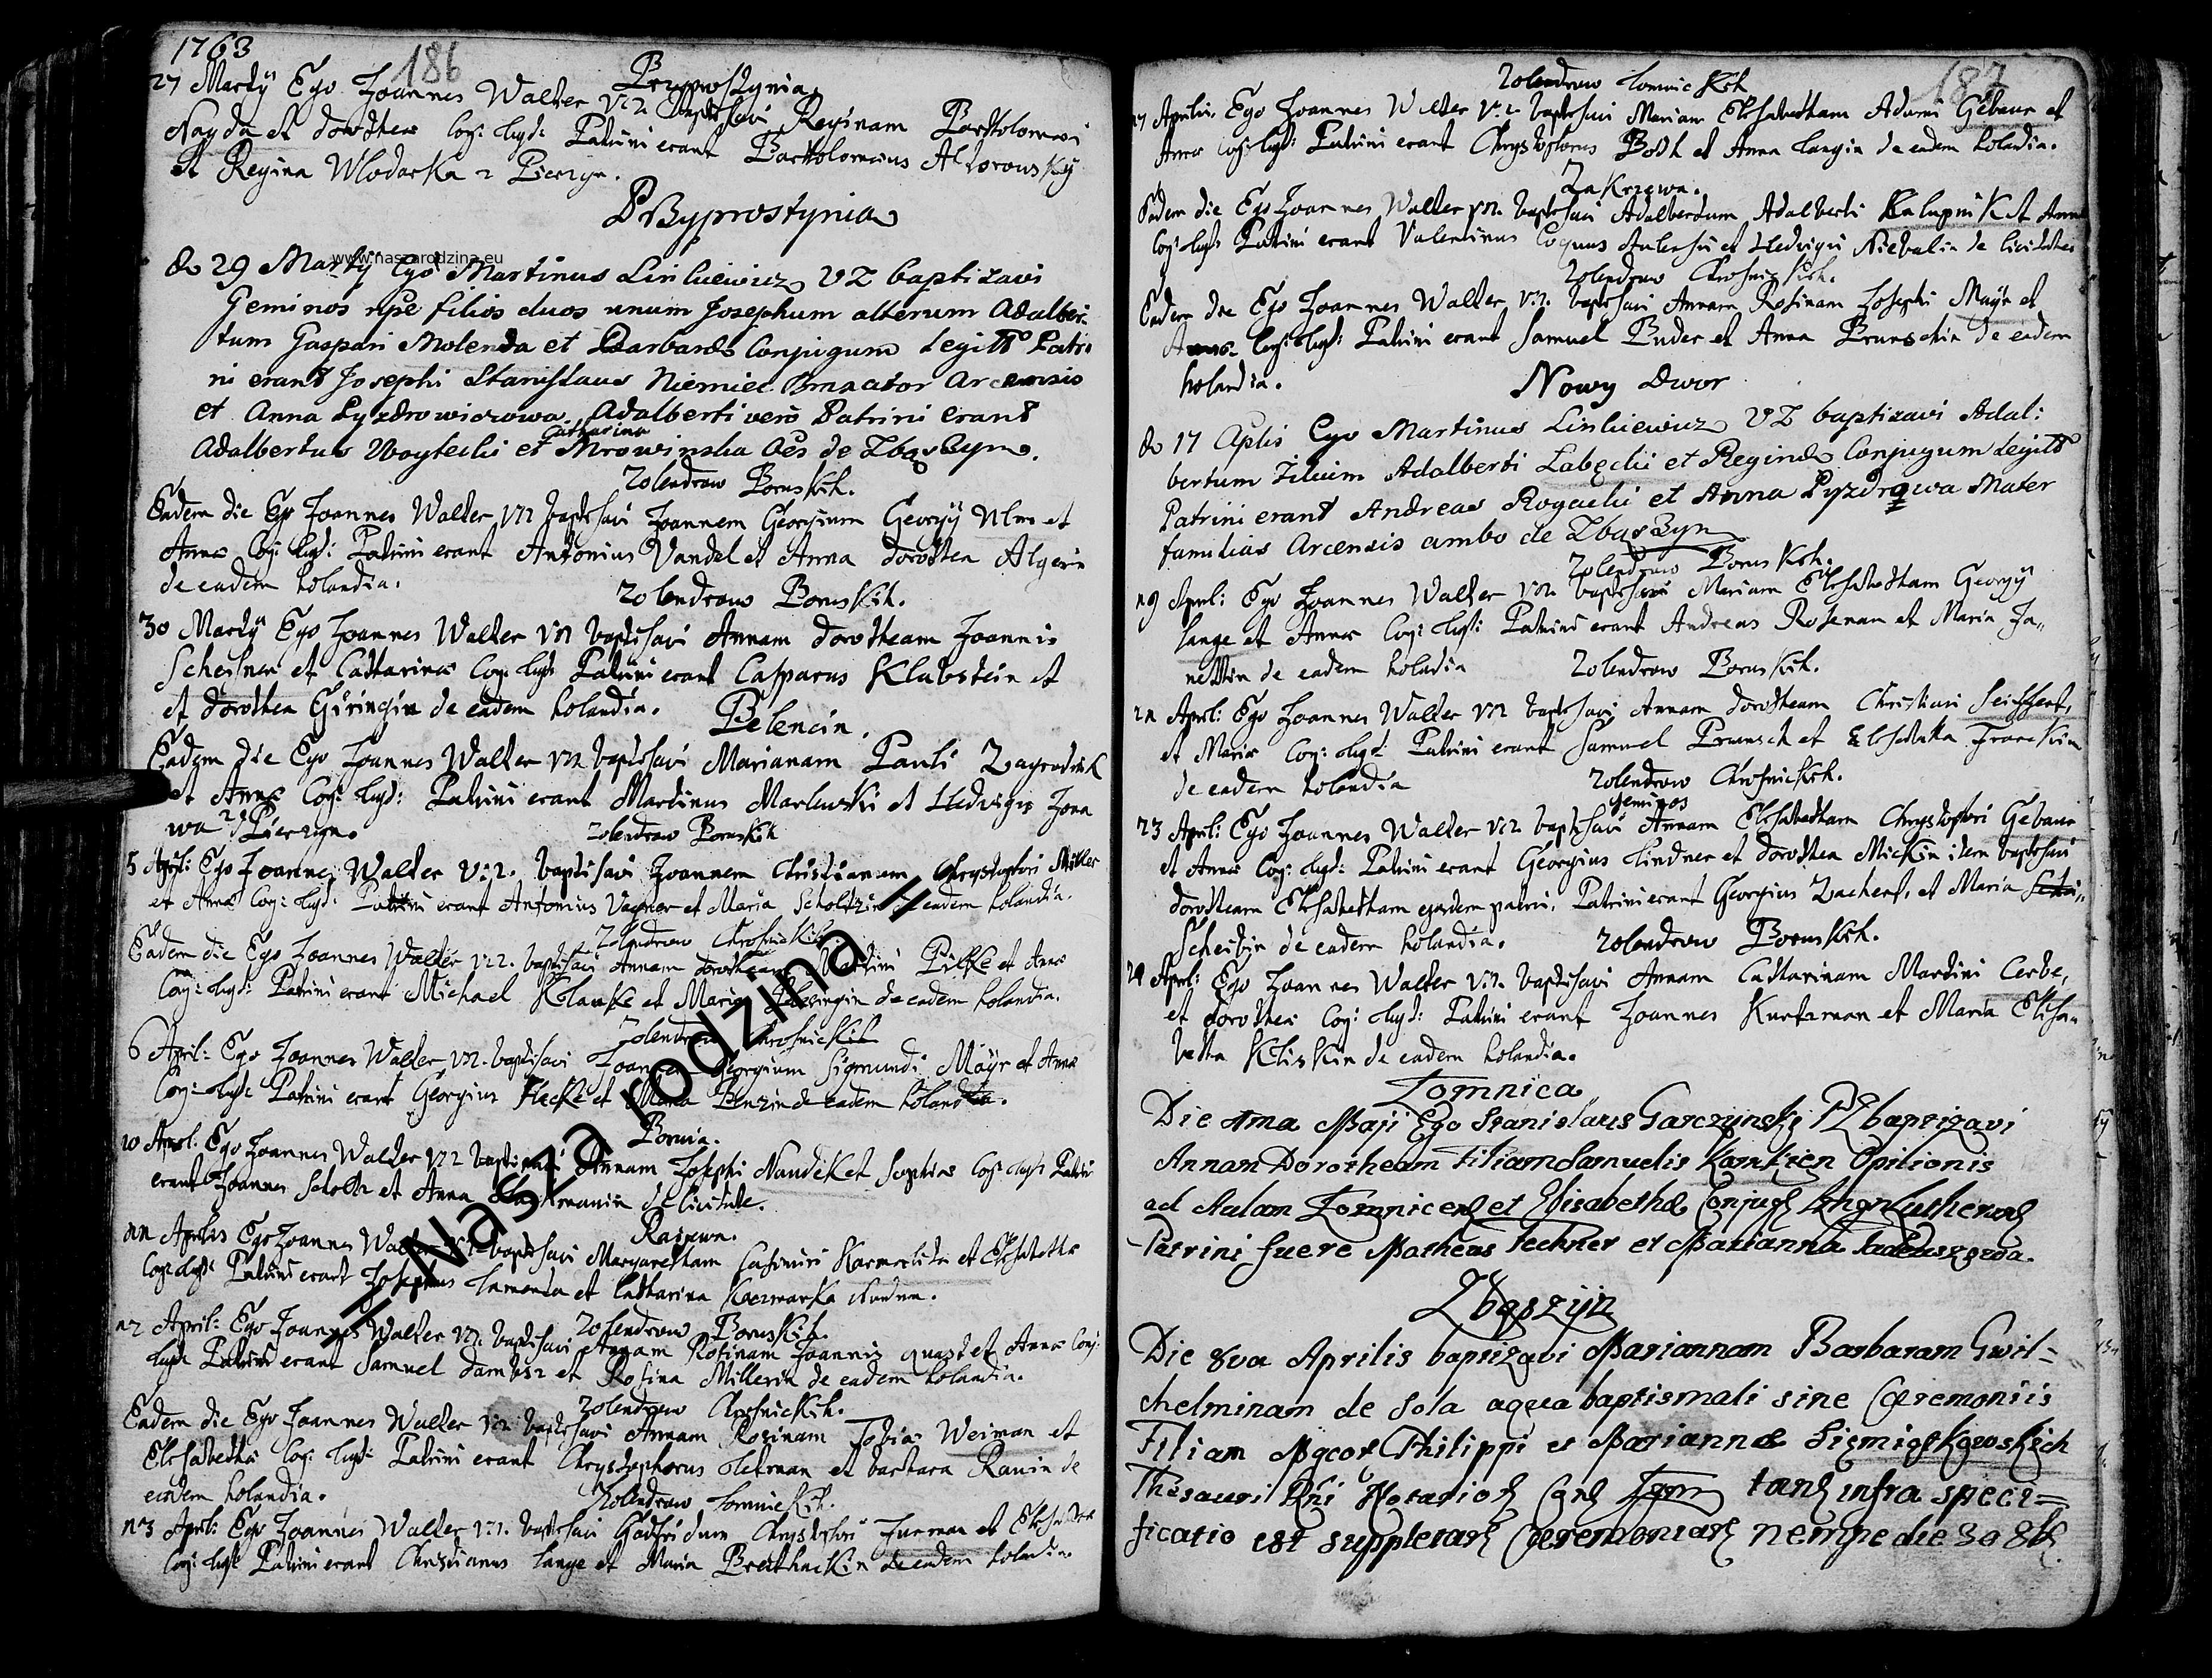 1763
186
Przyprostynia
27 Martÿ Ego Joannes Walter VZ baptisavi Reginam Bartholomaei
Nayda et Dorothea Coj: legt: Patrini erant Bartholomeus
et Regina Wlodarka z Pierzyn.
Przyprostynia
www.naszarodzina.eu
D 29 Martÿ Ego Martinus Linkiewicz VZ baptizavi
Geminos npe filios duos unum Josephum alterum Adalber-
tum Gaspari Molenda et Barbarae Conjugum Legitt Patri-
ni erant Josephi Stanislaus Niemiec Arcensis
et Anna Pyzdrowiczowa, Adalberti vero Patrini erant
Catharina
Adalbertus Woytecki et Mrowinska Oes de Zbąszyn.
Zolendrow Boruskich.
Eadem die Ego Joannes Walter VZ baptisavi Joannem Georgium Georgÿ Ulm et
Anna Coj: legt: Patrini erant Antonius Vandel et Anna Dorothea Algerin
de eadem holandia.
Zolendrow Boruskich.
30 Martÿ Ego Joannes Walter VZ baptisavi Annam Dorotheam Joannis
Scheisner et Catharina Coj: legt: Patrini erant Casparus Klabstein et
et Dorothea Giringin de eadem holandia.
Belencin.
Eadem die Ego Joannes Walter VZ baptisavi Marianam Pauli Zagrodnik
et Anna Coj: legt: Patrini erant Martinus Markuski et Hedvigis Jona
wa z Pierzyn.
Zolendrow Boruskich
5 April: Ego Joannes Walter VZ. baptisavi Joannem Christianum Chrystophori Miller
et Anna Coj: legt: Patrini erant Antonius Vagner et Maria Scholtzin de eadem holandia.
Zolendrow Chrosnickich
Eadem die Ego Joannes Walter VZ. baptisavi Annam Dorotheam Martini Pilke et Anna
Coj: legt: Patrini erant Michael Klauke et Maria de eadem holandia.
Zolendrow Chrosnickich
6 April: Ego Joannes Walter VZ. baptisavi Joannem Georgium Sigmundi Mäyr et Anna
Coj: legt: Patrini erant Georgius Flecke et Maria Benzin de eadem holandia.
Boruia.
10 April: Ego Joannes Walter VZ baptisavi Annam Josephi Naudek et Sophia Coj: legt: Patrini
erant Joannes Scholtz et Anna de Civitate.
Ego Joannes Walter VZ baptisavi Margaretham Casimiri et Elisabetha
Coj: legt: Patrini erant Josephus Lamenta et Catharina Kaczmarka
Zolendrow Boruskich.
12 April: Ego Joannes Walter VZ. baptisavi Annam Rosinam Joannis Quast et Anna Coj:
legt: Patrini erant Samuel et Rosina Millerin de eadem holandia.
Zolendrow Chrosnickich.
Eadem die Ego Joannes Walter VZ baptisavi Annam Rosinam Tobia Weiman et
Elisabetha Coj: legt: Patrini erant Chrystophorus Hetman et Barbara Rauin de
eadem holandia.
Zolendrow Lomnickich.
13 April: Ego Joannes Walter VZ. baptisavi Godfridum Chrystophori Furman et Elisabetha
Coj: legt: Patrini erant Christianus Lange et Maria de eadem holandia
= Nasza rodzina =
187
Zolendrow Lomnickich
17 Aprilis Ego Joannes Walter VZ baptisavi Mariam Elisabetham Adami Gebaur et
Anna Coj: legt: Patrini erant Chrystophorus et Anna Langin de eadem holandia.
Zakrzewa.
Eadem die Ego Joannes Walter VZ. baptisavi Adalbertum Adalberti Kalupnik et Anna
Coj: legt: Patrini erant Valentinus Coquus et Hedvigis de Civitate
Zolendrow Chrosnickich.
Eadem die Ego Joannes Walter VZ. baptisavi Annam Rosinam Josephi Mayr et
Anna Coj: legt: Patrini erant Samuel Puder et Anna Brunschin de eadem
holandia.
Nowy Dwor
D 17 Aplis Ego Martinus Linkiewicz VZ baptizavi Adal:
bertum Filium Adalberti Labęcki et Reginae Conjugum Legitt
Patrini erant Andreas Rogacki et Anna Pyzdrowa Mater
familias Arcensis ambo de Zbąszyn
Zolendrow Boruskich.
19 April: Ego Joannes Walter VZ. baptisavi Mariam Elisabetham Georgÿ
Lange et Anna Coj: legt: Patrini erant Andreas Rosenau et Maria Ja„
nettin de eadem holandia
Zolendrow Boruskich.
21 April: Ego Joannes Walter VZ baptisavi Annam Dorotheam Christiani Seiffert,
et Maria Coj: legt: Patrini erant Samuel Brunsch et Elisabetha Franckin
de eadem holandia
Zolendrow Chrosnickich.
geminos
23 April: Ego Joannes Walter VZ baptisavi Annam Elisabetham Chrystophori Gebaur
et Anna Coj: legt: Patrini erant Georgius Lindner et Dorothea Mickin item baptisavi
Dorotheam Elisabetham ejusdem patris, Patrini erant Georgius Zachert, et Maria
Scheibin de eadem holandia.
Zolendrow Boruskich.
24 April: Ego Joannes Walter VZ. baptisavi Annam Catharinam Martini Cerbe,
et Dorothea Coj: legt: Patrini erant Joannes Kurtzman et Maria Elisa„
betha Kliskin de eadem holandia.
Łomnica
Die 1ma Maji Ego Stanislaus Garczynski PZ baptizavi
Annam Dorotheam Filiam Samuelis Opilionis
ad Aulam et Elisabethae Conjug
Patrini fuere Matheus Techner et Marianna Tadeuszowa.
Zbąszÿn
Die 8va Aprilis baptizavi Mariannam Barbaram Gwil=
chelminam de sola aqua baptismali sine Caeremoniis
Filiam Mgcor Philippi et Mariannae
Thesauri Rni infra speci=
ficatio est suppletar Caeremoniar nempe die 30 8b